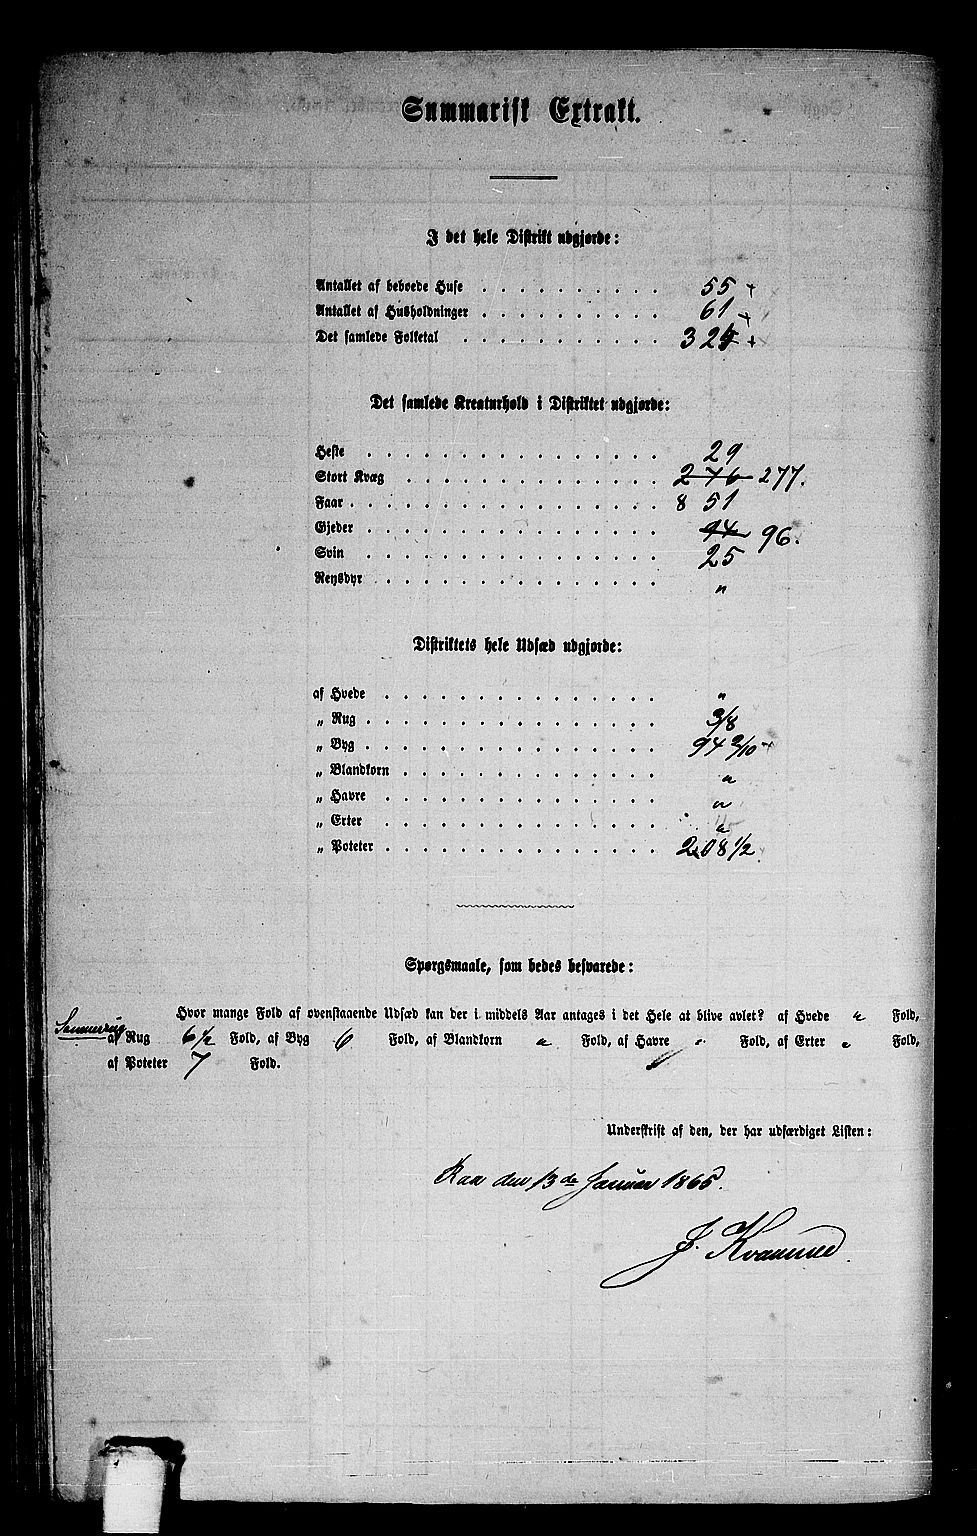 Summarisk Extrakt.
I det hele Distrikt udgjorde:
Antallet af beboede Huse . . . . . . . . 55
Antallet af Husholdninger . . . . . . . . 61
Det samlede Folketal . . . . . . . .
Det samlede Kreaturhold i Distriktet udgjorde:
Heste . . . . . . . . . . . . 29
Stort Kvæg . . . . . . . . . . 276 277.
Faar . . . . . . . . . . . . . 851
Gjeder . . . . . . . . . . . . 94 96.
Svin . . . . . . . . . . . . 25
Rensdyr . . . . . . . . . . . . "
Distriktets hele Udsæd udgjorde:
af Hvede . . . . . . . . . . . "
„ Rug . . . . . . . . . . . . 3/8
„ Byg . . . . . . . . . . . . 94 2/10
„ Blandkorn . . . . . . . . . . "
„ Havre . . . . . . . . . . . "
„ Erter . . . . . . . . . . . "
„ Poteter . . . . . . . . . . . 208 1/2
Spørgsmaale, som bedes besvarede:
Hvor mange Fold af ovenstaaende Udsæd kan der i middels Aar antages i det Hele at blive avlet? af Hvede " Fold,
Sommerrug
af Rug 6 1/2 Fold, af Byg 6 Fold, af Blandkorn " Fold, af Havre " Fold, af Erter " Fold,
af Poteter 7 Fold.
Underskrift af den, der har udfærdiget Listen:
den 13de Januar 1866.